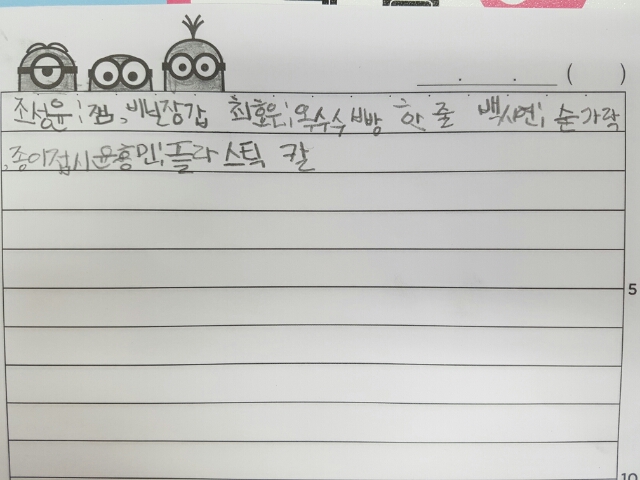 . . . ( )
최성윤;잼,비닐장갑 최호은;옥수수 빵 한 줄 백서연; 숟가락
,종이접시 윤흥민;플라스틱 칼
5
10